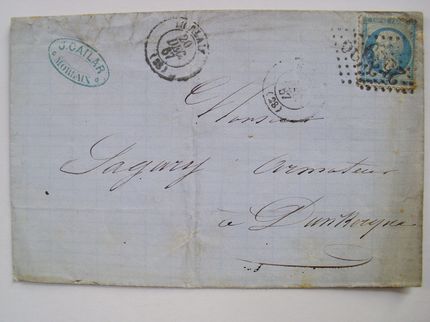 J. CAILAR
MORLAIX
MORLAIX
20
DEC
67
(28)
67
(28)
Monsieur
Lagary Armateur
à Dunkerque